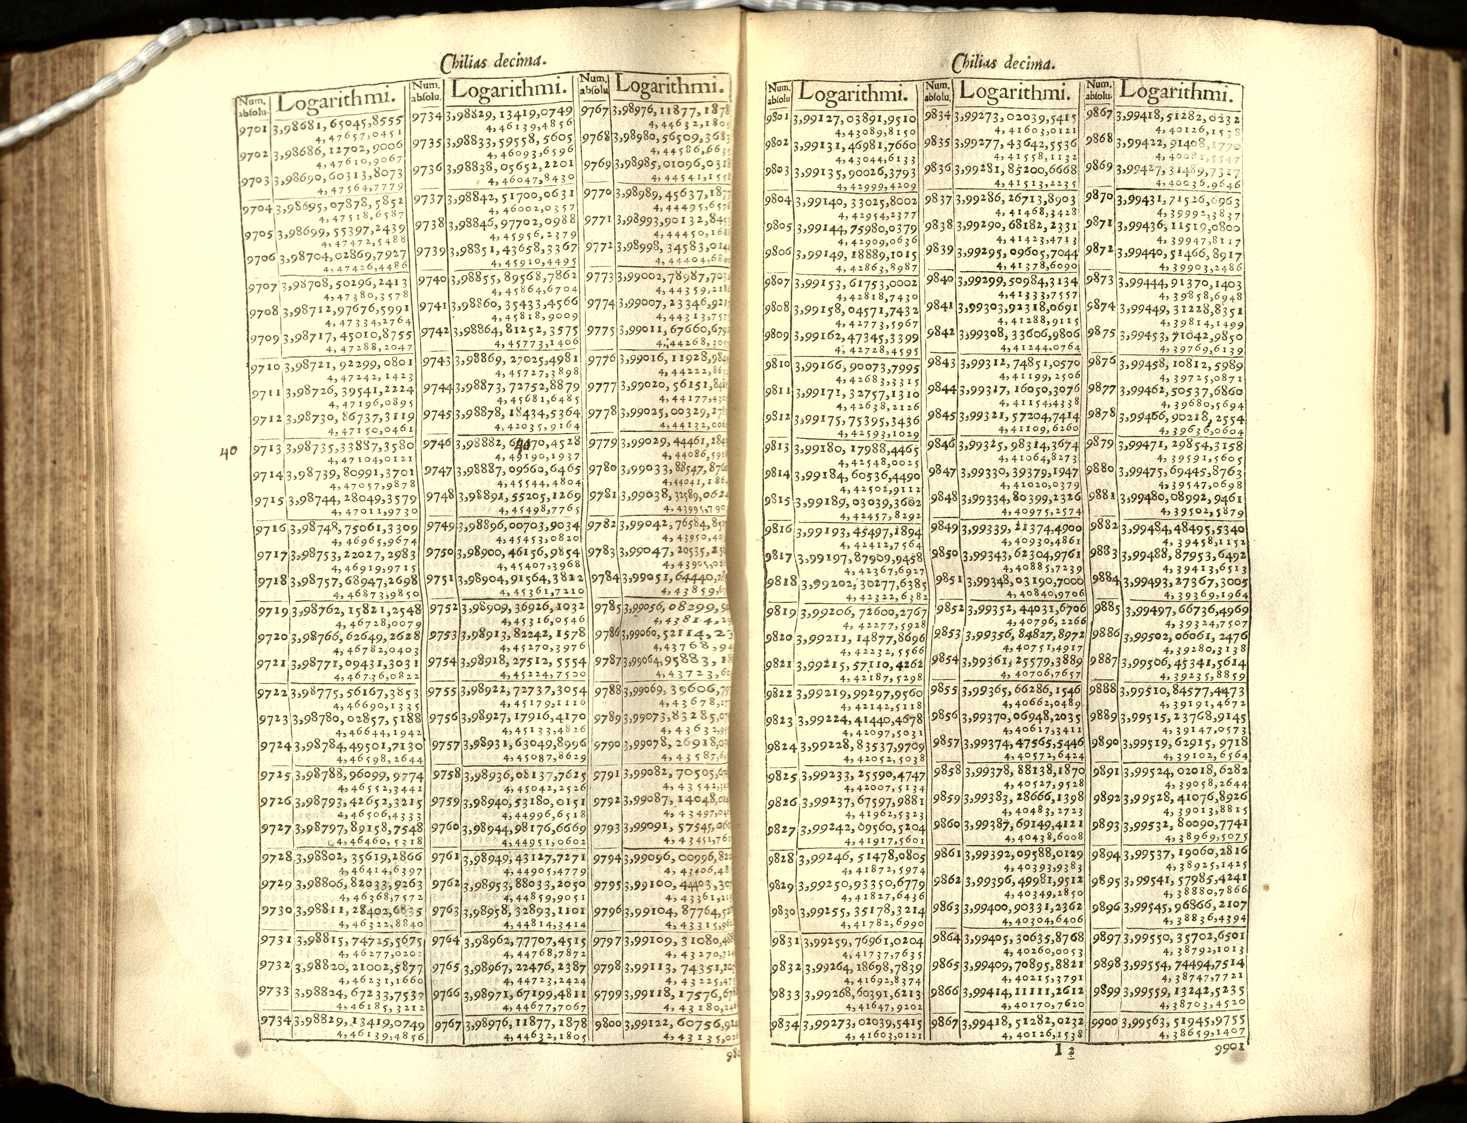 Chilias decima.
Num. absolu. Logarithmi.
9701 3,98681,65045,8555
4,47657,0451
9702 3,98686,12702,9006
4,47610,9067
9703 3,98690,60313,8073
4,47564,7779
9704 3,98695,07878,5852
4,47518,6587
9705 3,98699,55397,2439
4,47472,5488
9706 3,98704,02869,7927
4,47426,4486
9707 3,98708,50296,2413
4,47380,3578
9708 3,98712,97676,5991
4,47334,2764
9709 3,98717,45010,8755
4,47288,2047
9710 3,98721,92299,0801
4,47242,1423
9711 3,98726,39541,2224
4,47196,0895
9712 3,98730,86737,3119
4,47150,0461
40
9713 3,98735,33887,3580
4,47104,0121
9714 3,98739,80991,3701
4,47057,9878
9715 3,98744,28049,3579
4,47011,9730
9716 3,98748,75061,3309
4,46965,9674
9717 3,98753,22027,2983
4,46919,9715
9718 3,98757,68947,2698
4,46873,9850
9719 3,98762,15821,2548
4,46728,0079
9720 3,98766,62649,2628
4,46782,0403
9721 3,98771,09431,3031
4,46736,0822
9722 3,98775,56167,3853
4,46690,1335
9723 3,98780,02857,5188
4,46644,1942
9724 3,98784,49501,7130
4,46598,2644
9725 3,98788,96099,9774
4,46552,3441
9726 3,98793,42652,3215
4,46506,4333
9727 3,98797,89158,7548
4,46460,5318
9728 3,98802,35619,2866
4,46414,6397
9729 3,98806,82033,9263
4,46368,7572
9730 3,98811,28402,6835
4,46322,8840
9731 3,98815,74725,5675
4,46277,0202
9732 3,98820,21002,5877
4,46231,1660
9733 3,98824,67233,7537
4,46185,3212
9734 3,98829,13419,0749
4,46139,4856
Num. absolu. Logarithmi.
9734 3,98829,13419,0749
4,46139,4856
9735 3,98833,59558,5605
4,46093,6596
9736 3,98838,05652,2201
4,46047,8430
9737 3,98842,51700,0631
4,46002,0357
9738 3,98846,97702,0988
4,45956,2379
9739 3,98851,43658,3367
4,45910,4495
9740 3,98855,89568,7862
4,45864,6704
9741 3,98860,35433,4566
4,45818,9009
9742 3,98864,81252,3575
4,45773,1406
9743 3,98869,27025,4981
4,45727,3898
9744 3,98873,72752,8879
4,45681,6485
9745 3,98878,18434,5364
4,42035,9164
9746 3,98882,64070,4528
4,45190,1937
9747 3,98887,09660,6465
4,45544,4804
9748 3,98891,55205,1269
4,45498,7765
9749 3,98896,00703,9034
4,45453,0820
9750 3,98900,46156,9854
4,45407,3968
9751 3,98904,91564,3822
4,45361,7210
9752 3,98909,36926,1032
4,45316,0546
9753 3,98913,82242,1578
4,45270,3976
9754 3,98918,27512,5554
4,45224,7520
9755 3,98922,72737,3054
4,45179,1116
9756 3,98927,17916,4170
4,45133,4826
9757 3,98931,63049,8996
4,45087,8629
9758 3,98936,08137,7625
4,45042,2526
9759 3,98940,53180,0151
4,44996,6518
9760 3,98944,98176,6669
4,44951,0602
9761 3,98949,43127,7271
4,44905,4779
9762 3,98953,88033,2050
4,44859,9051
9763 3,98958,32893,1101
4,44814,3414
9764 3,98962,77707,4515
4,44768,7872
9765 3,98967,22476,2387
4,44723,2424
9766 3,98971,67199,4811
4,44677,7067
9767 3,98976,11877,1878
4,44632,1805
Num. absolu. Logarithmi.
9767 3,98976,11877,187
4,44632,180
9768 3,98980,56509,368
4,44586,663
9769 3,98985,01096,03
4,44541,15
9770 3,98989,45637,187
4,44495,65
9771 3,98993,90132,84
4,44450,16
9772 3,98998,34583,01
4,44404,68
9773 3,99002,78987,70
4,44359,21
9774 3,99007,23346,92
4,44313,75
9775 3,99011,67660,67
4,44268,30
9776 3,99016,11928,98
4,44222,86
9777 3,99020,56151,84
4,44177,43
9778 3,99025,00329,27
4,44132,00
9779 3,99029,44461,28
4,44086,59
9780 3,99033,88547,87
4,44041,18
9781 3,99038,32589,062
4,43995,790
9782 3,99042,76584,85
4,43950,4
9783 3,99047,20535,25
4,43905,0
9784 3,99051,64440,2
4,43859,6
9785 3,99056,08299,9
4,43814,2
9786 3,99060,52114,23
4,43768,9
9787 3,99064,95883,1
4,43723,6
9788 3,99069,39606,7
4,43678,2
9789 3,99073,83285,0
4,43632,9
9790 3,99078,26918,0
4,43587,6
9791 3,99082,70505,6
4,43542,3
9792 3,99087,14048,0
4,43497,0
9793 3,99091,57545,06
4,43451,76
9794 3,99096,00996,82
4,43406,48
9795 3,99100,44403,30
4,43361,2
9796 3,99104,87764,52
4,43315,96
9797 3,99109,31080,48
4,43270,7
9798 3,99113,74351,2
4,43225,4
9799 3,99118,17576,67
4,43180,2
9800 3,99122,60756,9
4,43135,0
98
Chilias decima.
Num. absolu. Logarithmi.
9801 3,99127,03891,9510
4,43089,8150
9802 3,99131,46981,7660
4,43044,6133
9803 3,99135,90026,3793
4,42999,4209
9804 3,99140,33025,8002
4,42954,2377
9805 3,99144,75980,0379
4,42909,0636
9806 3,99149,18889,1015
4,42863,8987
9807 3,99153,61753,0002
4,42818,7430
9808 3,99158,04571,7432
4,42773,5967
9809 3,99162,47345,3399
4,42728,4595
9810 3,99166,90073,7995
4,42683,3315
9811 3,99171,32757,1310
4,42638,2126
9812 3,99175,75395,3436
4,42593,1029
9813 3,99180,17988,4465
4,42548,0025
9814 3,99184,60536,4490
4,42502,9112
9815 3,99189,03039,3602
4,42457,8292
9816 3,99193,45497,1894
4,42412,7564
9817 3,99197,87909,9458
4,42367,6927
9818 3,99202,30277,6385
4,42322,6382
9819 3,99206,72600,2767
4,42277,5928
9820 3,99211,14877,8696
4,42232,5566
9821 3,99215,57110,4262
4,42187,5298
9822 3,99219,99297,9560
4,42142,5118
9823 3,99224,41440,4678
4,42097,5031
9824 3,99228,83537,9709
4,42052,5038
9825 3,99233,25590,4747
4,42007,5134
9826 3,99237,67597,9881
4,41962,5323
9827 3,99242,09560,5204
4,41917,5601
9828 3,99246,51478,0805
4,41872,5974
9829 3,99250,93350,6779
4,41827,6436
9830 3,99255,35178,3214
4,41782,6990
9831 3,99259,76961,0204
4,41737,7635
9832 3,99264,18698,7839
4,41692,8374
9833 3,99268,60391,6213
4,41647,9202
9834 3,99273,02039,5415
4,41603,0121
Num. absolu. Logarithmi.
9834 3,99273,02039,5415
4,41603,0121
9835 3,99277,43642,5536
4,41558,1132
9836 3,99281,85200,6668
4,41513,2235
9837 3,99286,26713,8903
4,41468,3428
9838 3,99290,68182,2331
4,41423,4713
9839 3,99295,09605,7044
4,41378,6090
9840 3,99299,50984,3134
4,41333,7557
9841 3,99303,92318,0691
4,41288,9115
9842 3,99308,33606,9806
4,41244,0764
9843 3,99312,74851,0570
4,41199,2506
9844 3,99317,16050,3076
4,41154,4338
9845 3,99321,57204,7414
4,41109,6260
9846 3,99325,98314,3674
4,41064,8273
9847 3,99330,39379,1947
4,41020,0379
9848 3,99334,80399,2326
4,40975,2574
9849 3,99339,21374,4900
4,40930,4861
9850 3,99343,62304,9761
4,40885,7239
9851 3,99348,03190,7000
4,40840,9706
9852 3,99352,44031,6706
4,40796,2266
9853 3,99356,84827,8972
4,40751,4917
9854 3,99361,25579,3889
4,40706,7657
9855 3,99365,66286,1546
4,40662,0489
9856 3,99370,06948,2035
4,40617,3411
9857 3,99374,47565,5446
4,40572,6424
9858 3,99378,88138,1870
4,40527,9528
9859 3,99383,28666,1398
4,40483,2723
9860 3,99387,69149,4121
4,40438,6008
9861 3,99392,09588,0129
4,40393,9383
9862 3,99396,49981,9512
4,40349,2850
9863 3,99400,90331,2362
4,40304,6406
9864 3,99405,30635,8768
4,40260,0053
9865 3,99409,70895,8821
4,40215,3791
9866 3,99414,11111,2612
4,40170,7620
9867 3,99418,51282,0232
4,40126,1538
Num. absolu. Logarithmi.
9867 3,99418,51282,0232
4,40126,1538
9868 3,99422,91408,1770
4,40081,5547
9869 3,99427,31489,7327
4,40036,9646
9870 3,99431,71526,6963
4,39992,3837
9871 3,99436,11519,0800
4,39947,8117
9872 3,99440,51466,8917
4,39903,2486
9873 3,99444,91370,1403
4,39858,6948
9874 3,99449,31228,8351
4,39814,1499
9875 3,99453,71042,9850
4,39769,6139
9876 3,99458,10812,5989
4,39725,0871
9877 3,99462,50537,6860
4,39680,5694
9878 3,99466,90218,2554
4,39636,0604
9879 3,99471,29854,3158
4,39591,5605
9880 3,99475,69445,8763
4,39547,0698
9881 3,99480,08992,9461
4,39502,5879
9882 3,99484,48495,5340
4,39458,1152
9883 3,99488,87953,6492
4,39413,6513
9884 3,99493,27367,3005
4,39369,1964
9885 3,99497,66736,4969
4,39324,7507
9886 3,99502,06061,2476
4,39280,3138
9887 3,99506,45341,5614
4,39235,8859
9888 3,99510,84577,4473
4,39191,4672
9889 3,99515,23768,9145
4,39147,0573
9890 3,99519,62915,9718
4,39102,6564
9891 3,99524,02018,6282
4,39058,2644
9892 3,99528,41076,8926
4,39013,8815
9893 3,99532,80090,7741
4,38969,5075
9894 3,99537,19060,2816
4,38925,1425
9895 3,99541,57985,4241
4,38880,7866
9896 3,99545,96866,2107
4,38836,4394
9897 3,99550,35702,6501
4,38792,1013
9898 3,99554,74494,7514
4,38747,7721
9899 3,99559,13242,5235
4,38703,4520
9900 3,99563,51945,9755
4,38659,1407
I 2
9901